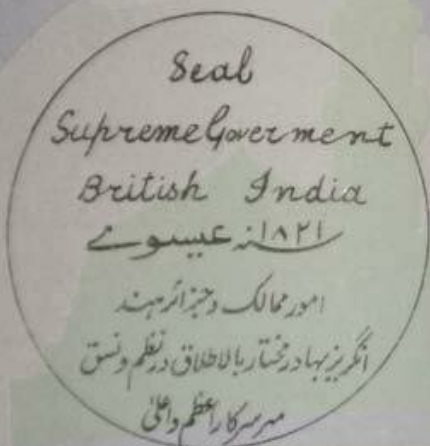 Seal
Supreme Goverment
British India
سنہ ۱۸۲۱ عیسوے
امور ممالک و جزائر ہند
انگریز بہادر مختار بالاطلاق در نظم و نسق
مہر سرکار اعظم و اعلیٰ